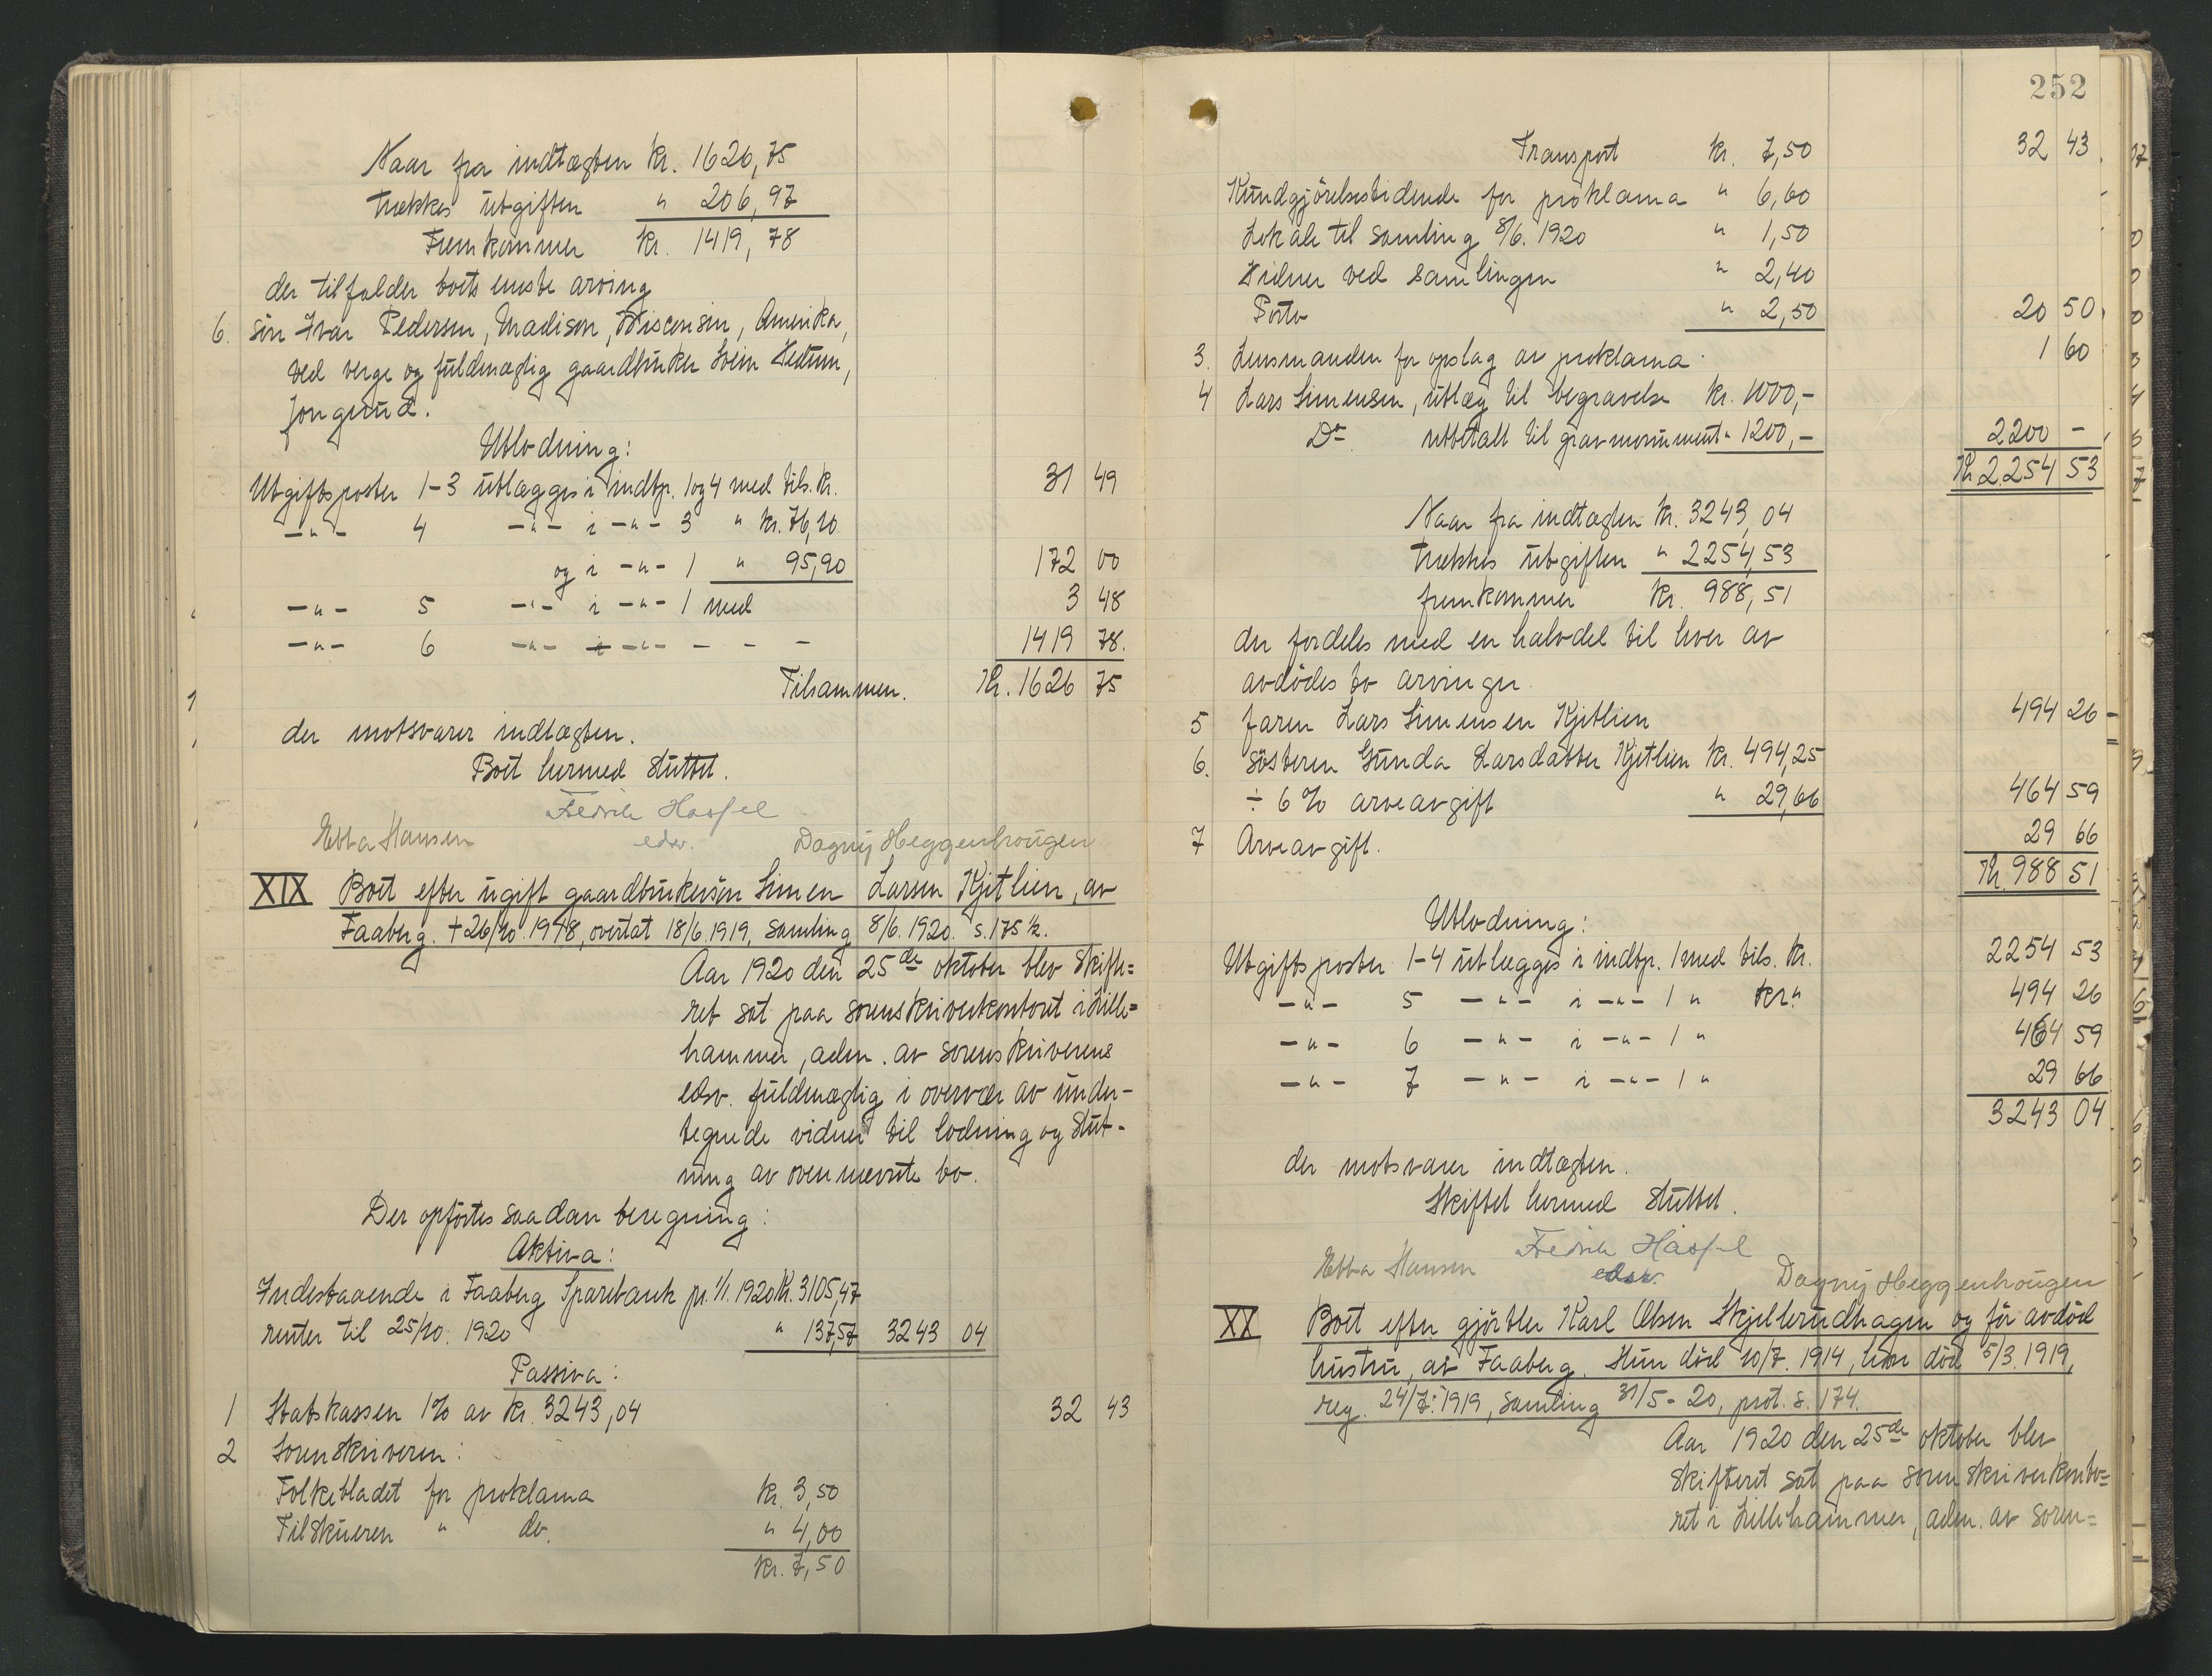 Naar fra indtægten kr. 1626,75
trækkes utgiften " 206,97
Fremkommer kr. 1419,78
der tilfalder boets eneste arving
6. søn Ivar Pedersen, Madison, Wisconsin, Amerika,
ved verge og fuldmægtig gaardbruker Svein
Utlodning:
Utgiftsposter 1-3 utlægges i indtp. 1 og 4 med tils. kr. 31 49
-"- 4 -"- i -"- 3 " kr. 76,10
og i -"- 1 " 95,90 172 00
-"- 5 -"- i -"- 1 med 3 48
-"- 6 -"- i -"- - - - 1419 78.
Tilsammen. Kr. 1626 75
der motsvarer indtægten.
Boet hermed sluttet.
Fredrik Hassel
Ebba Hansen edsv. Dagny Heggenhougen
XIX Boet efter ugift gaardbrukersøn Simen Larsen Kjetlien, av
Faaberg. + 26/10. 1918, overtat 18/6. 1919, samling 8/6. 1920. s. 175 1/2.
Aar 1920 den 25de oktober blev skifte=
ret sat paa sorenskriverkontoret i Lille=
hammer, adm. av sorenskriverens
edsv. fuldmægtig i overvær av under-
tegnede vidner til lodning og slut-
ning av ovennævnte bo.
Der opførtes saadan beregning:
Aktiva:
Indestaaende i Faaberg Sparebank pr. 1/1. 1920 Kr. 3105,47
renter til 25/10. 1920 " 137,57 3243 04
Passiva:
1 Statskassen 1% av kr. 3243,04 32 43
2 Sorenskriveren:
Folkebladet for proklama kr. 3,50
Tilskueren " do. " 4,00
kr. 7,50
252
Transport kr. 7,50 32 43
Kundgjørelsestidende for proklama " 6,60
Lokale til samling 8/6. 1920 " 1,50
Vidner ved samlingen " 2,40
Porto " 2,50 20 50
3. Lensmanden for opslag av proklama 1 60
4 Lars Simensen, utlæg til begravelse kr. 1000,-
Do utbetalt til gravmonument " 1200,- 2200 -
Kr. 2254 53
Naar fra indtægten kr. 3243,04
trækkes utgiften " 2254,53
fremkommer kr. 988,51
der fordeles med en halvdel til hver av
avdødes to arvinger.
5 faren Lars Simensen Kjetlien 494 26
6. søsteren Gunda Larsdatter Kjetlien kr. 494,25
÷ 6% arveavgift " 29,66 464 59
7 Arveavgift. 29 66
Kr. 988 51
Utlodning:
Utgiftsposter 1-4 utlægges i indtp. 1 med tils. kr. 2254 53
-"- 5 -"- i -"- 1 " kr." 494 26
-"- 6 -"- i -"- 1 " 464 59
-"- 7 -"- i -"- 1 " 29 66
3243 04
der motsvarer indtægten.
Skiftet hermed sluttet.
Ebba Hansen Fredrik Hassel
edsv. Dagny Heggenhougen
XX Boet efter gjørtler Karl Olsen Skjellerudhagen og før avdød
hustru, av Faaberg. Hun død 10/7. 1914, han død 5/3. 1919,
reg. 24/7. 1919, samling 31/5-20, prot. s. 174.
Aar 1920 den 25de oktober blev
skifteret sat paa sorenskriverkonto=
ret i Lillehammer, adm. av soren=